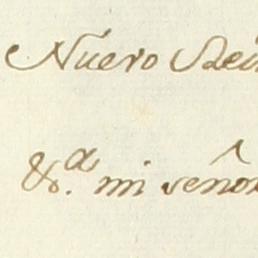 Nuevo Rei
&.a mi señor